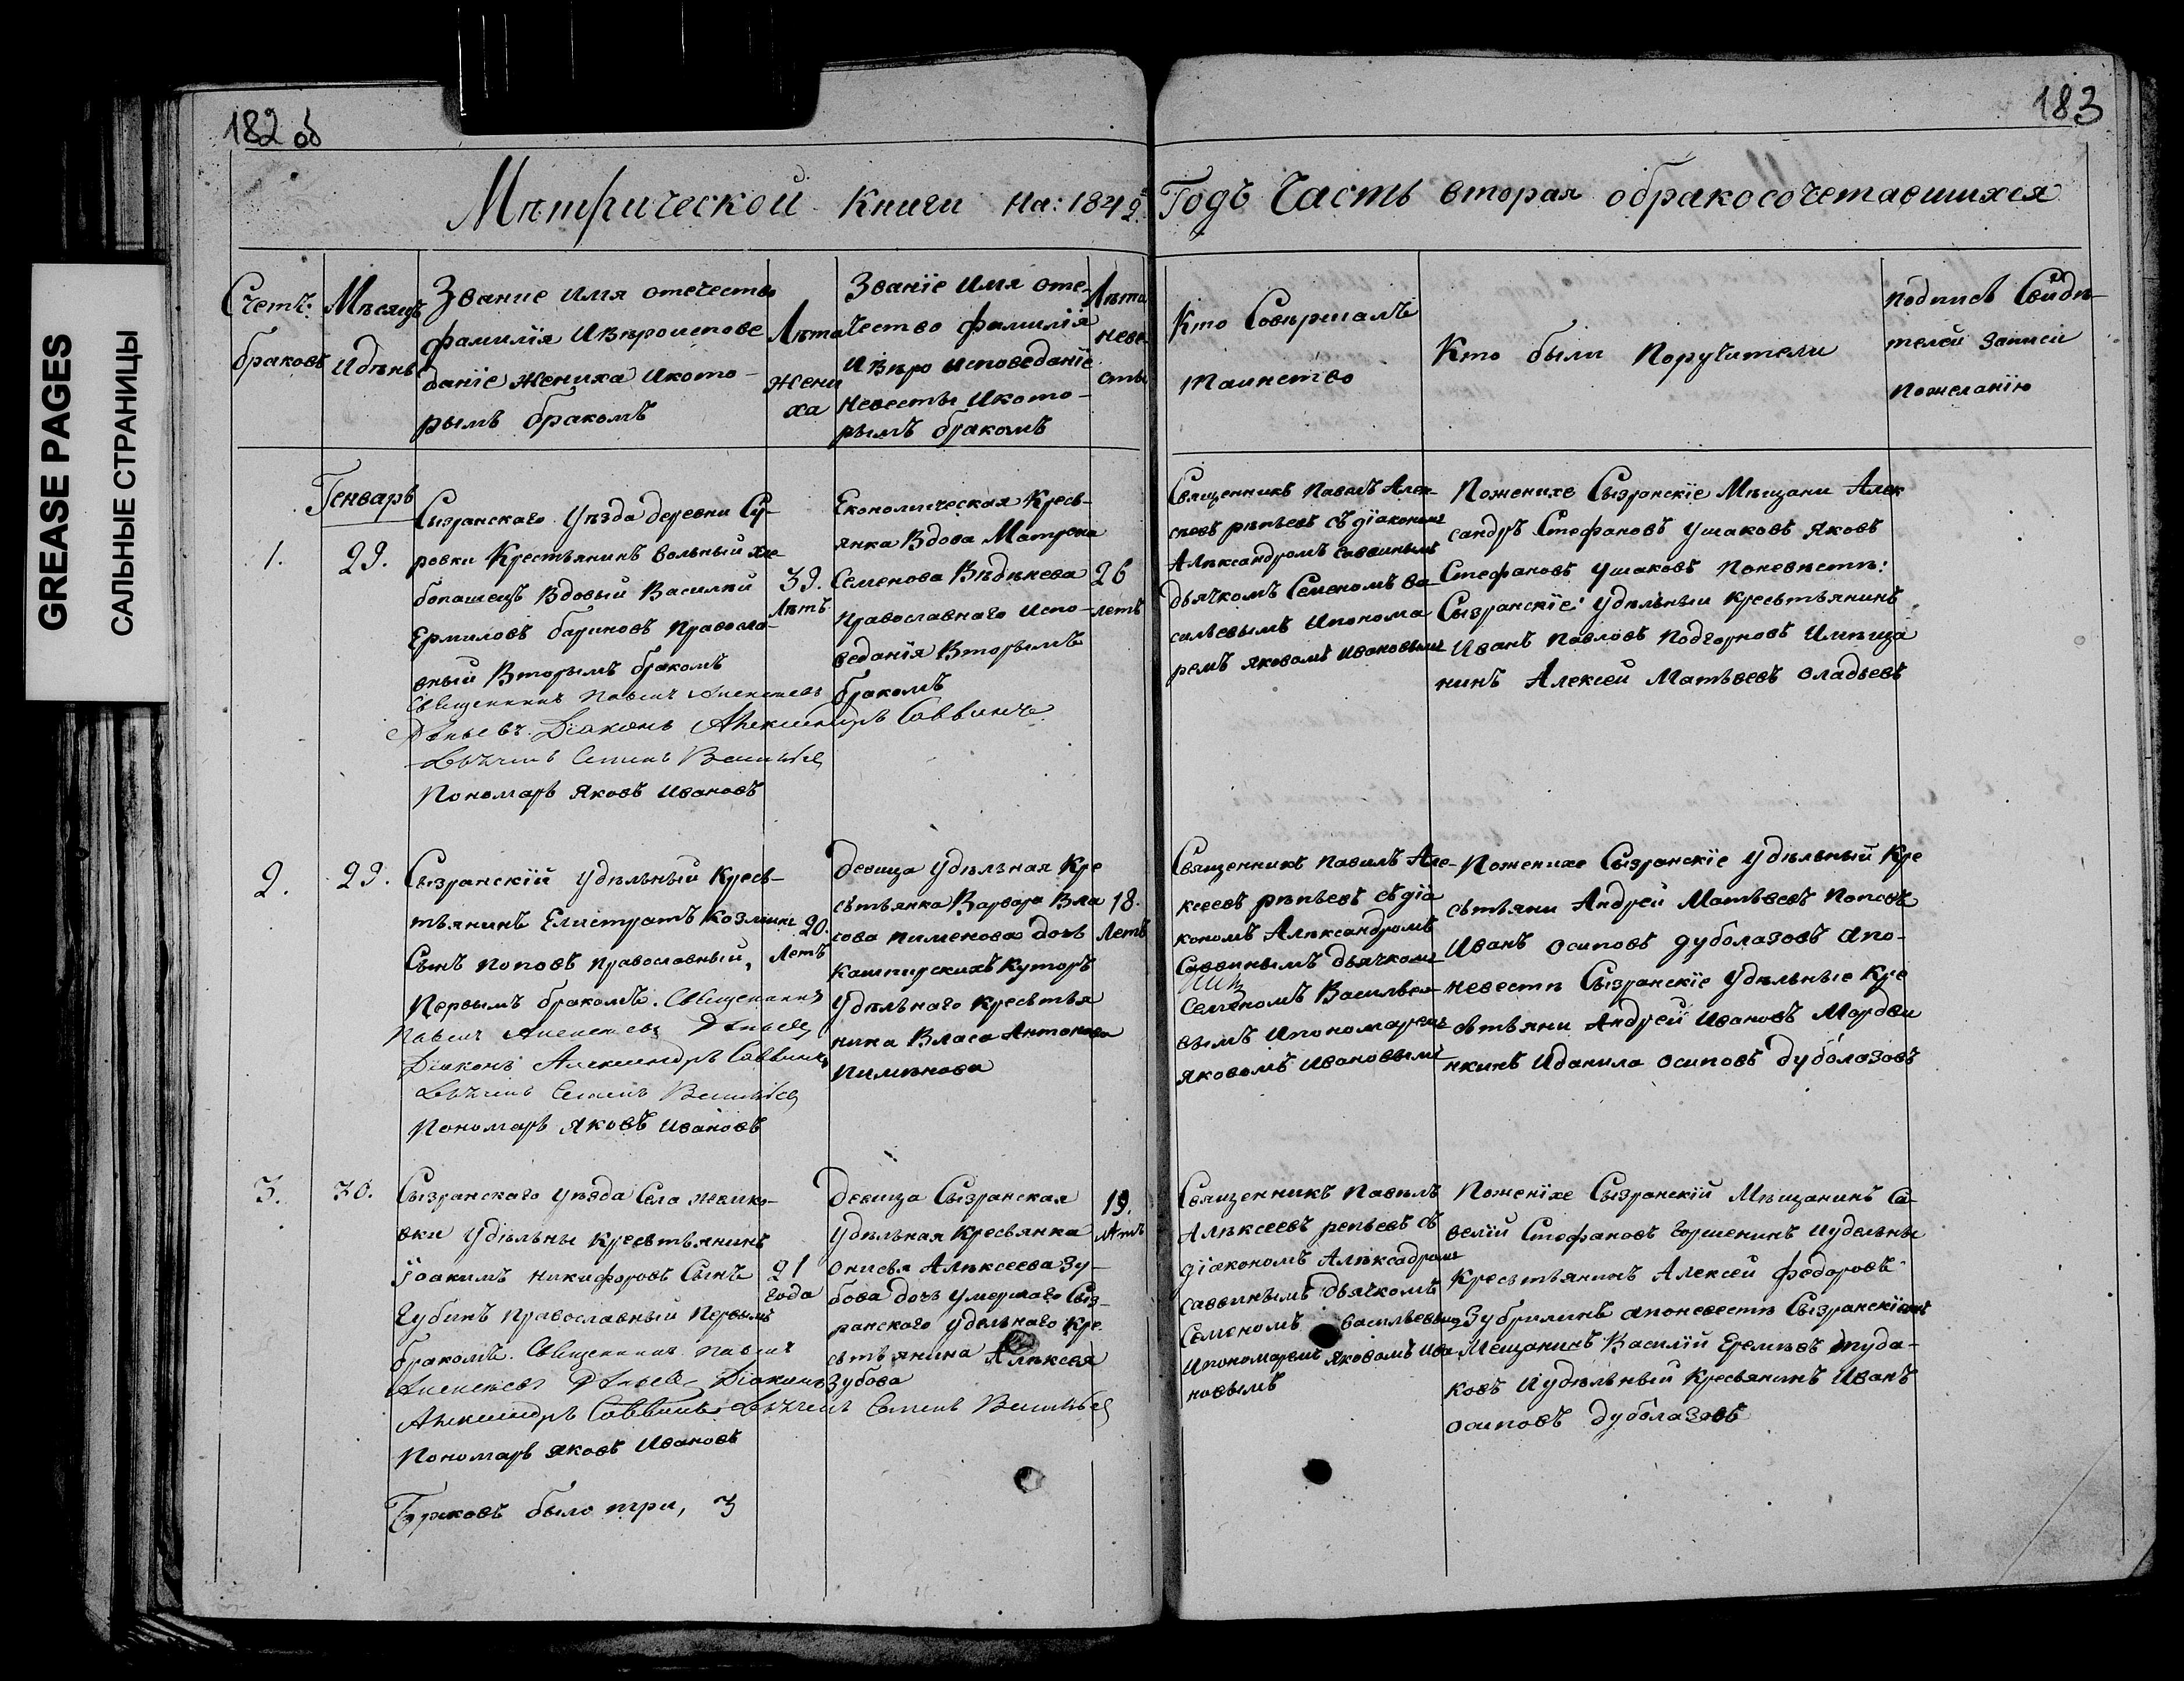 GREASE PAGES
САЛЬНЫЕ СТРАНИЦЫ
182 об
183
Мѣтрической Книги На: 1842: Годъ Часть вторая обракосочетавшихся
Счетъ
браковъ
Мѣсяцъ
Идѣнь
Звание имя отечество
фамилïя Ивѣроисповѣ
данïе жениха Икото-
рымъ бракомъ
Лѣта
жени
ха
Званïе Имя оте-
чество фамилïя
Ивѣро исповеданïе
Невесты Икото-
рымъ бракомъ
Лѣта
неве
сты
Кто Совѣршалъ
таинство
Кто были Поручители
подпись Свидѣ-
телей записи
пожеланïю
Генварь
1.
29.
Сызранскаго Уѣзда деревни Су-
ровки Крестьянинъ вольный хле-
бопашецъ Вдовый Василïй
Ермиловъ бариновъ Правосла-
вный Вторымъ бракомъ
Священникъ Павелъ Алексеевъ
Рѣпьевъ. Дïаконъ Александръ Саввинъ
Дьячекъ Семенъ Васильев
Пономарь Яковъ Ивановъ
39.
Лѣтъ
Економическая Кресь-
янка Вдова Матрена
Семенова Вѣдѣнева
православнаго Испо-
веданïя Вторымъ
бракомъ
26
летъ
Священникъ Павелъ Алек-
сѣевъ рѣпьевъ съ дïакономъ
Алѣксандромъ саввинымъ
дьячкомъ Семеномъ Ва-
сильевымъ Ипонома
ремъ яковомъ ивановымъ
Поженихе Сызранскïе Мѣщани Алек
сандръ Стефановъ Ушаковъ Яковъ
Стефановъ Ушаковъ Поневѣстѣ:
Сызранскïе: Удѣльный кресьтьянинъ
Иванъ Павловъ Подгорновъ Имѣща
нинъ Алексей Матвеевъ Оладьевъ
2.
29.
Сызранскïй удѣльный Кресь-
тьянинъ Елистратъ Козминъ
Сынъ поповъ православный,
Первымъ бракомъ. Священникъ
Павелъ Алексеевъ Рѣпьевъ
Дïаконъ Александръ Саввинъ
Дьячекъ Семенъ Васильев
Пономарь Яковъ Ивановъ
20.
Летъ
Девица удѣльная Кре
сьтьянка Варвара Вла
сова пименова дочь
Кашпирскихъ Куторъ
удѣльнаго кресьтья
нина Власа Антонова
Пимѣнова
18.
Летъ
Священникъ павелъ Але-
ксеевъ рѣпьевъ съ дïа
кономъ Алѣксандромъ
Саввинымъ дьячкомъ
Семѣномъ Василье-
вымъ Ипономаремъ
яковомъ ивановымъ
Поженихе Сызранскïе удѣльный Кре
сьтьяни Андрей Матвеевъ Поповъ
Иванъ осиповъ дуболазовъ Апо-
невестѣ Сызранскïе удѣльные Кре
сьтьяни Андрей Ивановъ Мордви
нкинъ Иданила осиповъ дуболазовъ
3.
30.
Сызранскаго уѣзда Села
вки удѣльны кресьтьянинъ
Ïоакимъ никифоровъ Сынъ
Губинъ православный Первымъ
бракомъ. Священникъ Павелъ
Алексеевъ Рѣпьевъ Дïаконъ
Александръ Саввинъ Дьячекъ Семенъ Васильев
Пономарь Яковъ Ивановъ
21
года
Девица Сызранская
удѣльная Кресьянка
Онисья Алѣксеева Зу-
бова дочь умершаго Сыз-
ранскаго удельнаго кре
сьтьянина Алѣксея
Зубова
19.
лѣтъ
Священникъ павѣлъ
Алѣксеевъ репьевъ съ
дïакономъ Алѣксадромъ
саввинымъ дьячкомъ
Семеномъ васильевымъ
Ипономаремъ Яковомъ Ива
новымъ
Поженïхе Сызранскïй Мѣщанинъ Са-
велïй Стефановъ Горшенинъ Иудельны
Кресьтьянинъ Алексей федоровъ
Зубрилинъ апоневестѣ Сызранскïе
Мещанинъ Василïй Еремѣевъ туда-
ковъ Иудѣльный Кресьянинъ Иванъ
осиповъ дуболазовъ
Браковъ было три, 3